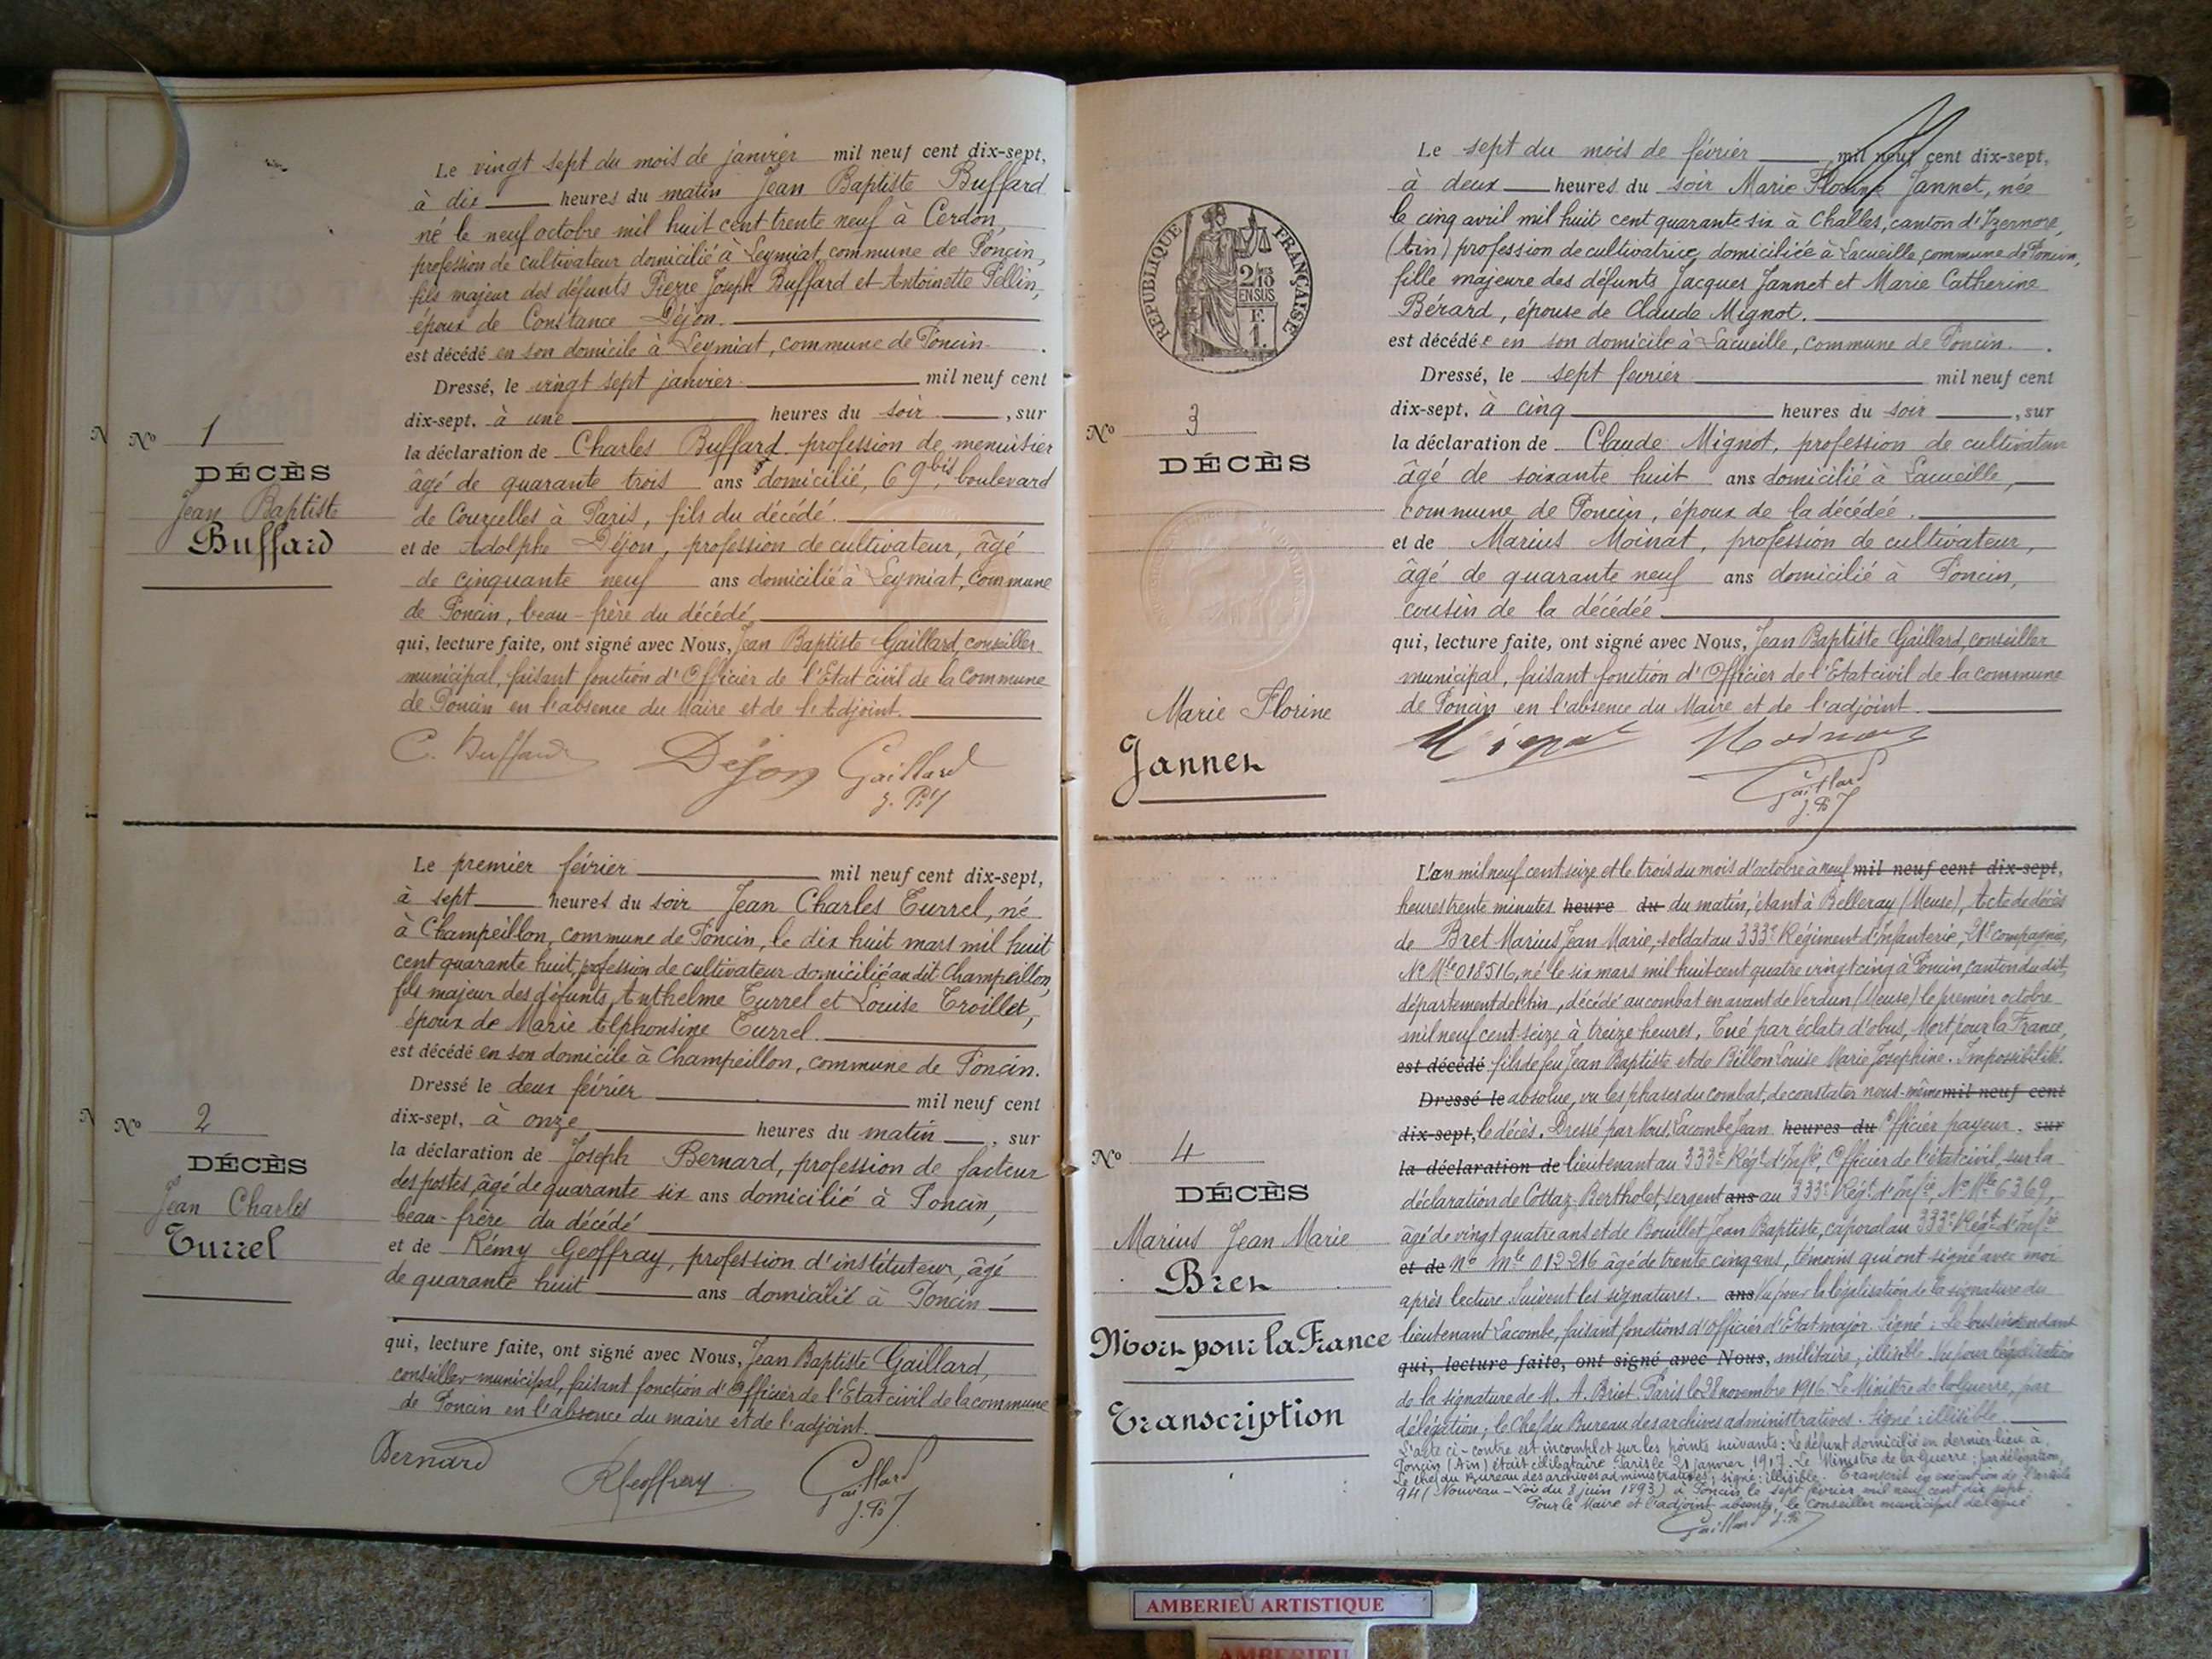 Le vingt sept du mois de janvier mil neuf cent dix-sept,
à dix heures du matin Jean Baptiste Buffard
né le neuf octobre mil huit cent trente neuf à Cerdon,
profession de cultivateur domicilié à Leymiat, commune de Poncin,
fils majeur des défunts Pierre Joseph Buffard et Antoinette Pellin,
époux de Constance Déjon.
est décédé en son domicile à Leymiat, commune de Poncin.
Dressé, le vingt sept janvier mil neuf cent
dix-sept, à une heures du soir, sur
la déclaration de Charles Buffard profession de menuisier
âgé de quarante trois ans domicilié, 69 bis, boulevard
de Courcelles à Paris, fils du décédé.
et de Adolphe Déjon, profession de cultivateur, âgé
de cinquante neuf ans domicilié à Leymiat, commune
de Poncin, beau-frère du décédé
qui, lecture faite, ont signé avec Nous, Jean Baptiste Gaillard, conseiller
municipal, faisant fonction d'Officier de l'Etat civil de la commune
de Poncin en l'absence du Maire et de l'Adjoint.
C. Buffard Déjon Gaillard
N° 1
DÉCÈS
Jean Baptiste
Buffard
Le premier février mil neuf cent dix-sept,
à sept heures du soir Jean Charles Turrel, né
à Champeillon, commune de Poncin, le dix huit mars mil huit
cent quarante huit, profession de cultivateur domicilié au dit Champeillon,
fils majeur des défunts Anthelme Turrel et Louise Troillet,
époux de Marie Alphonsine Turrel.
est décédé en son domicile à Champeillon, commune de Poncin.
Dressé le deux février mil neuf cent
dix-sept, à onze heures du matin, sur
la déclaration de Joseph Bernard, profession de facteur
des postes, âgé de quarante six ans domicilié à Poncin,
beau-frère du décédé
et de Rémy Geoffray, profession d'instituteur, âgé
de quarante huit ans domicilié à Poncin
qui, lecture faite, ont signé avec Nous, Jean Baptiste Gaillard,
conseiller municipal, faisant fonction d'Officier de l'Etat civil de la commune
de Poncin en l'absence du maire et de l'adjoint.
Bernard R Geoffray Gaillard
N° 2
DÉCÈS
Jean Charles
Turrel
Le sept du mois de février mil neuf cent dix-sept,
à deux heures du soir Marie Florine Jannet, née
le cinq avril mil huit cent quarante six à Challes, canton d'Izernore,
(Ain) profession de cultivatrice domiciliée à Lacueille, commune de Poncin,
fille majeure des défunts Jacques Jannet et Marie Catherine
Bérard, épouse de Claude Mignot.
est décédée en son domicile à Lacueille, commune de Poncin.
Dressé, le sept fevrier mil neuf cent
dix-sept, à cinq heures du soir, sur
la déclaration de Claude Mignot, profession de cultivateur
âgé de soixante huit ans domicilié à Lacueille,
commune de Poncin, époux de la décédée.
et de Marius Moinat, profession de cultivateur,
âgé de quarante neuf ans domicilié à Poncin,
cousin de la décédée
qui, lecture faite, ont signé avec Nous, Jean Baptiste Gaillard, conseiller
municipal, faisant fonction d'Officier de l'Etat civil de la commune
de Poncin en l'absence du Maire et de l'adjoint.
Mignot Moinat
Gaillard
RÉPUBLIQUE FRANÇAISE
2/10
EN SUS
F.
1.
N° 3
DÉCÈS
Marie Florine
Jannet
L'an mil neuf cent seize et le trois du mois d'octobre à neuf mil neuf cent dix-sept,
heures trente minutes heure du du matin, étant à Belleray (Meuse), Acte de décès
de Bret Marius Jean Marie, soldat au 333e Régiment d'Infanterie, 21e compagnie,
N° Mle 018516, né le six mars mil huit cent quatre vingt cinq à Poncin, canton du dit,
département de l'Ain, décédé au combat en avant de Verdun (Meuse) le premier octobre
mil neuf cent seize à treize heures, Tué par éclats d'obus, Mort pour la France,
est décédé fils de feu Jean Baptiste et de Billon Louise Marie Josephine. Impossibilité
Dressé le absolue, vu les phases du combat, de constater nous-même mil neuf cent
dix-sept, le décès. Dressé par Nous, Lacombe Jean heures du Officier payeur. sur
la déclaration de lieutenant au 333e Régt d'Infie, Officier de l'état civil, sur la
déclaration de Cottaz-Bertholet, sergent ans au 333e Régt d'Infie, N° Mle 6369,
âgé de vingt quatre ans et de Bouillet Jean Baptiste, caporal au 333e Régt d'Infie
et de N° Mle 012216 âgé de trente cinq ans, témoins qui ont signé avec moi
après lecture. Suivent les signatures. ans Vu pour la légalisation de la signature du
lieutenant Lacombe, faisant fonctions d'Officier d'Etat major. Signé : Le sous-intendant
qui, lecture faite, ont signé avec Nous, militaire, illisible. Vu pour légalisation
de la signature de M. A. Briet. Paris le 28 novembre 1916. Le Ministre de la Guerre, par
délégation, le Chef du Bureau des archives administratives. Signé : illisible.
L'acte ci-contre est incomplet sur les points suivants : Le défunt domicilié en dernier lieu à
Poncin (Ain) était célibataire. Paris le 21 janvier 1917. Le Ministre de la Guerre : par délégation,
Le chef du Bureau des archives administratives, signé : illisible. Transcrit en exécution de l'article
94 (Nouveau - Loi du 8 juin 1893) à Poncin le sept février mil neuf cent dix sept.
Pour le Maire et l'adjoint absents, le Conseiller municipal délégué
Gaillard
N° 4
DÉCÈS
Marius Jean Marie
Bret
Mort pour la France
Transcription
AMBERIEU ARTISTIQUE
AMBERIEU